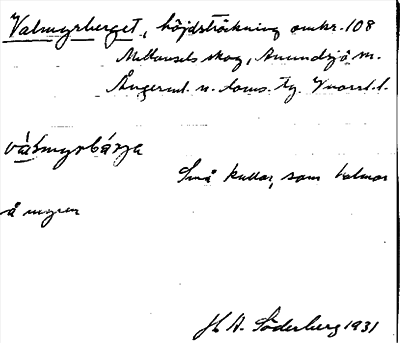 Valmyrberget, höjdsträckning omkr. 108
Mellansels skog, Anundsjö sn.
Ångerml. n. doms. tg. Vnorrl. l.
válmyrbárja
Små kullar, som valmar
å myren
H. A. Söderberg 1931